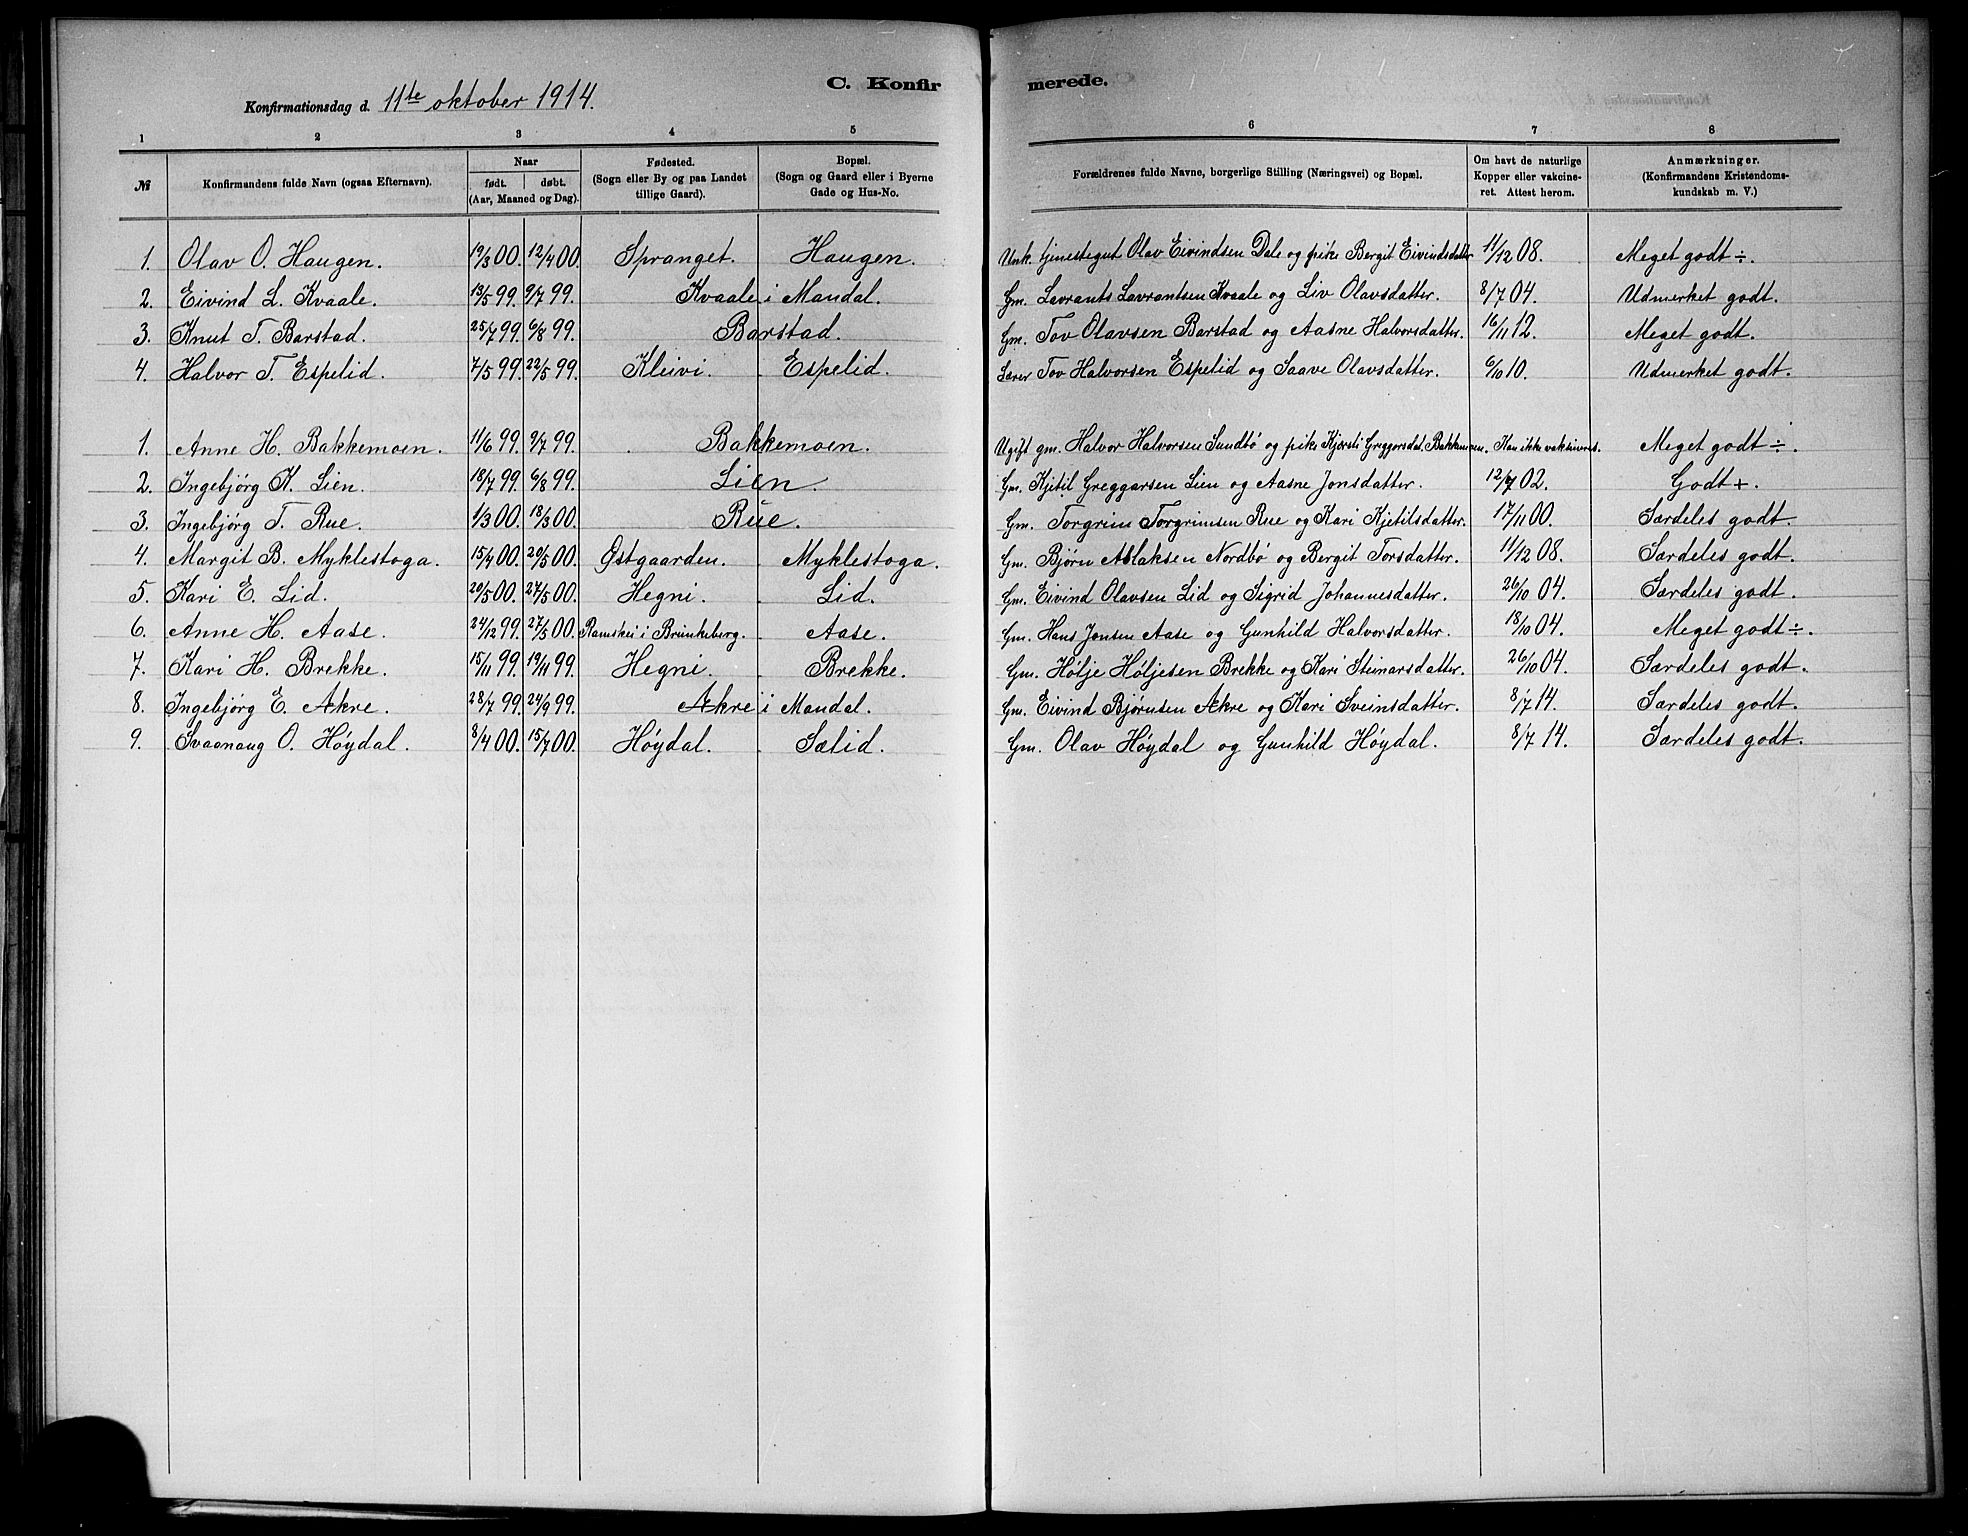 C. Konfirmerede.
Konfirmationsdag d. 11te oktober 1914.
1 2 3 4 5 6 7 8
№ Konfirmandens fulde Navn (ogsaa Efternavn). Naar født. døbt. (Aar, Maaned og Dag). Fødested. (Sogn eller By og paa Landet tillige Gaard). Bopæl. (Sogn og Gaard eller i Byerne Gade og Hus-No. Forældrenes fulde Navne, borgerlige Stilling (Næringsvei) og Bopæl. Om havt de naturlige Kopper eller vakcineret. Attest herom. Anmærkninger. (Konfirmandens Kristendomskundskab m. V.)
1. Olav O. Haugen. 19/3 00. 12/4 00. Spranget. Haugen. Unk. tjenestegut Olav Eivindsen Dale og pike Bergit Eivindsdatter 11/12 08. Meget godt ÷.
2. Eivind L. Kvaale. 13/5 99. 9/7 99. Kvaale i Mandal. Gm. Lavrants Lavrantsen Kvaale og Liv Olavsdatter. 8/7 04. Udmerket godt.
3. Knut T. Barstad. 25/7 99. 6/8 99. Barstad. Gm. Tov Olavsen Barstad og Aasne Halvorsdatter. 16/11 12. Meget godt.
4. Halvor T. Espelid. 7/5 99. 22/5 99. Kleivi. Espelid. Lærer Tov Halvorsen Espelid og Saave Olavsdatter. 6/10 10. Udmerket godt.
1. Anne H. Bakkemoen. 11/6 99. 9/7 99. Bakkemoen. Ugift gm. Halvor Halvorsen Sundbö og pike Kjersti Greggorsdat. Bakkemoen. Kan ikke vaksineres. Meget godt ÷.
2. Ingebjörg K. Lien. 18/7 99. 6/8 99. Lien. Gm. Kjetil Greggarsen Lien og Aasne Jonsdatter. 12/7 02. Godt +.
3. Ingebjörg T. Rue. 1/3 00. 18/3 00. Rue. Gm. Torgrim Torgrimsen Rue og Kari Kjetilsdatter. 17/11 00. Særdeles godt.
4. Margit B. Myklestoga. 15/4 00. 20/5 00. Østgaarden. Myklestoga. Gm. Bjørn Aslaksen Nordbö og Bergit Torsdatter. 11/12 08. Særdeles godt.
5. Kari E. Lid. 20/5 00. 27/5 00. Hegni. Lid. Gm. Eivind Olavsen Lid og Sigrid Johannesdatter. 26/10 04. Særdeles godt.
6. Anne H. Aase. 24/12 99. 27/5 00. i Brunkeberg. Aase. Gm. Hans Jonsen Aase og Gunhild Halvorsdatter. 18/10 04. Meget godt ÷.
7. Kari H. Brekke. 15/11 99. 19/11 99. Hegni. Brekke. Gm. Hølje Høljesen Brekke og Kari Steinarsdatter. 26/10 04. Særdeles godt.
8. Ingebjörg E. Akre. 28/7 99. 24/9 99. Akre i Mandal. Gm. Eivind Bjørnsen Akre og Kari Sveinsdatter. 8/7 14. Særdeles godt.
9. Svaanaug O. Höydal. 8/4 00. 15/7 00. Höydal. Sælid. Gm. Olav Höydal og Gunhild Höydal. 8/7 14. Særdeles godt.